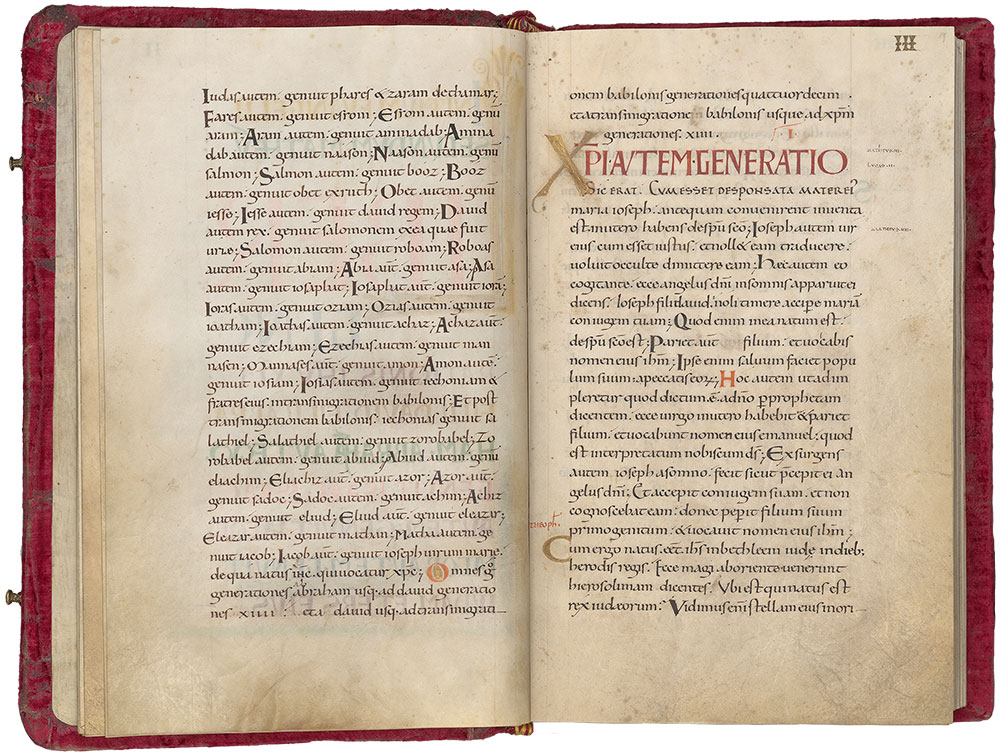 Iudas autem. genuit phares & zaram dethamar;
Fares autem. genuit esrom; Esrom autem. genū
aram; Aram autem. genuit aminadab; Amina
dab autem. genuit naason; Naason autem. genū
salmon; Salmon autem. genuit booz; Booz
autem. genuit obet ex ruth; Obet autem. genū
iesse; Iesse autem. genuit david regem; David
autem rex. genuit salomonem exea quae fuit
urie; Salomon autem. genuit roboam; Roboas
autem. genuit abiam; Abia aūt. genuit asa; Asa
autem. genuit iosaphat; Iosaphat aūt. genuit iorā;
Ioras autem. genuit oziam; Ozias autem. genuit
ioatham; Ioathas autem. genuit achaz; Achaz aūt.
genuit ezechiam; Ezechias autem. genuit man
nasen; Mannases aūt. genuit amon; Amon autē.
genuit iosiam; Iosias autem. genuit iechoniam &
fratres eius intransmigrationem babilonis; Et post
transmigrationem babilonis. iechonias genuit sa
lathiel; Salathiel autem. genuit zorobabel; Zo
robabel autem. genuit abiud; Abiud autem. genuit
eliachim; Eliachiz aūt. genuit azor; Azor aūt.
genuit sadoc; Sadoc autem. genuit achim; Achiz
autem. genuit eliud; Eliud aūt. genuit eleazar;
Eleazar autem. genuit mathan; Matha autem. ge
nuit iacob; Iacob aūt. genuit ioseph virum marie.
de qua natus ihc. qui vocatur xpc; Omnes g
generationes abraham usq. ad david generatio
nes XIIII. &a david usq. ad transmigrati
III
onem babilonis generationes quattuordecim.
&atransmigratione babilonis usque ad xpm̄
generationes. xiiii.
I
XPI·AVTEM·GENERATIO
SIC ERAT. CVM ESSET DESPONSATA MATER EI'
maria ioseph. antequam convenirent inventa
est inutero habens despū scō; Ioseph autem vir
eius cum esset iustus. & noll& eam traducere.
voluit occulte dimittere eam; Haec autem eo
cogitante. ecce angelus dnī insomnis apparuit ei
dicens. Ioseph fili david. noli timere accipe mariā
coniugem tuam; Quod enim in ea natum est.
despū scō est; Pariet aūt filium. et vocabis
nomen eius ihm̄; Ipse enim salvum faciet popu
lum suum apeccatis eorꝝ; Hoc autem ut adim
pleretur quod dictum ē. adnō p̄ prophetam
dicentem. ecce virgo inutero habebit & pariet
filium. et vocabunt nomen eius emanuel. quod
est interpretatum nobiscum dś; Exsurgens
autem ioseph asomno. fecit sicut p̄cepit ei an
gelus dnī; Et accepit coniugem suam. et non
cognoscebat eam. donec peperit filium suum
primogenitum. & vocavit nomen eius ihm̄;
Cum ergo natus. eēt. ihs inbethleem iudę indieb;
herodis regis. Ecce magi aboriente venerunt
hierosolimam dicentes. Ubi est qui natus est
rex iudaeorum; Vidimus enī stellam eius inori